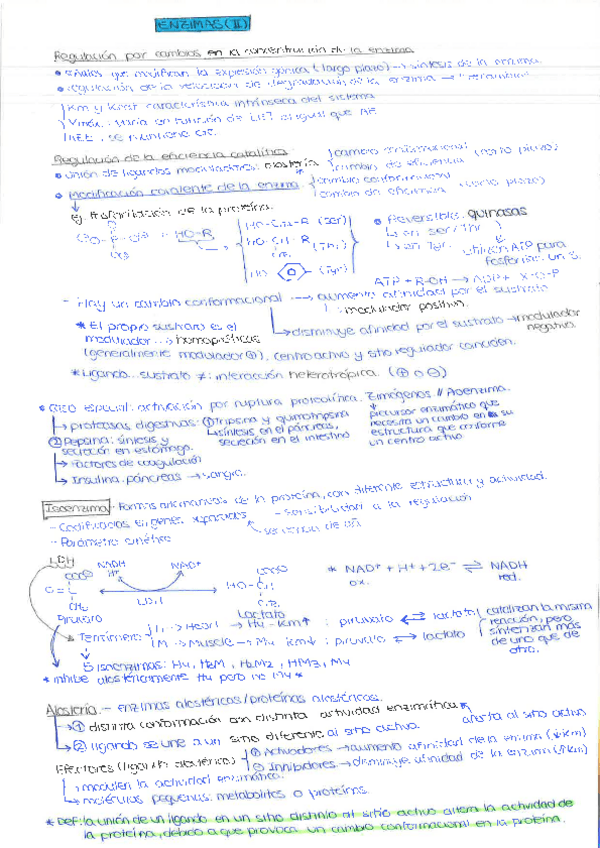 ENZIMAS (II)
Regulación por cambios en la concentración de la enzima
señales que modifican la expresión génica (largo plazo) → síntesis de la enzima
regulación de la velocidad de degradación de la enzima →
Km y Kcat característica intrínseca del sistema
Vmáx. varía en función de [E]T al igual que
[E]T se mantiene cte.
Regulación de la eficiencia catalítica
unión de ligandos moduladores: alostería
cambio conformacional (corto plazo)
cambio de eficiencia
modificación covalente de la enzima
cambio conformacional
cambio de eficiencia (corto plazo)
ej. fosforilación de la proteína.
HO-R
HO-CH2-R (Ser)
HO-CH-R (Thr)
CH3
HO (Tyr)
Reversibles: quinasas
en Ser/Thr
en Tyr.
utilizan ATP para
fosforilar un S.
ATP + R-OH → ADP +
- Hay un cambio conformacional → aumento afinidad por el sustrato
modulador positivo.
disminuye afinidad por el sustrato → modulador
negativo.
* El propio sustrato es el
modulador → homotrópicas
(generalmente modulador ⊕), centro activo y sitio regulador coinciden.
* Ligando sustrato ≠: interacción heterotrópica. (⊕ o ⊖)
caso especial: activación por ruptura proteolítica. Zimógenos // Proenzima.
proteasas digestivas: ① Tripsina y quimotripsina
síntesis en el páncreas,
secreción en el intestino
② Pepsina: síntesis y
secreción en estómago.
Factores de coagulación
Insulina: páncreas → sangre.
precursor enzimático que
necesita un cambio en su
estructura que conforme
un centro activo
Isoenzima - Formas de la proteína, con diferente estructura y actividad.
- Codificadas genes
- Sensibilidad a la regulación
- Parámetro cinético
LDH
NADH
H+
NAD+
COO
C=
CH3
LDH
HO-C
CH3
Piruvato
Lactato
* NAD+ + H+ + 2e- ⇌ NADH
ox.
red.
Tetrámero
H → Heart → H4 - Km↑ : piruvato ↔ lactato
M → Muscle → M4 Km↓ : piruvato ↔ lactato
catalizan la misma
reacción, pero
sintetizan más
de uno que de
otro.
5 isoenzimas: H4, H3M, H2M2, HM3, M4
* inhibe alostéricamente H4 pero no M4 *
Alostería - enzimas alostéricas/proteínas alostéricas.
① distinta conformación con distinta actividad enzimática
afecta al sitio activo
② ligando se une a un sitio diferente al sitio activo.
Efectores (ligando alostérico)
① Activadores → aumento afinidad de la enzima (↓Km)
② Inhibidores → disminuye afinidad de la enzima (↑Km)
modulan la actividad enzimática.
moléculas pequeñas: metabolitos o proteínas.
* DEF: la unión de un ligando en un sitio distinto al sitio activo altera la actividad de
la proteína, debido a que provoca un cambio conformacional en la proteína.